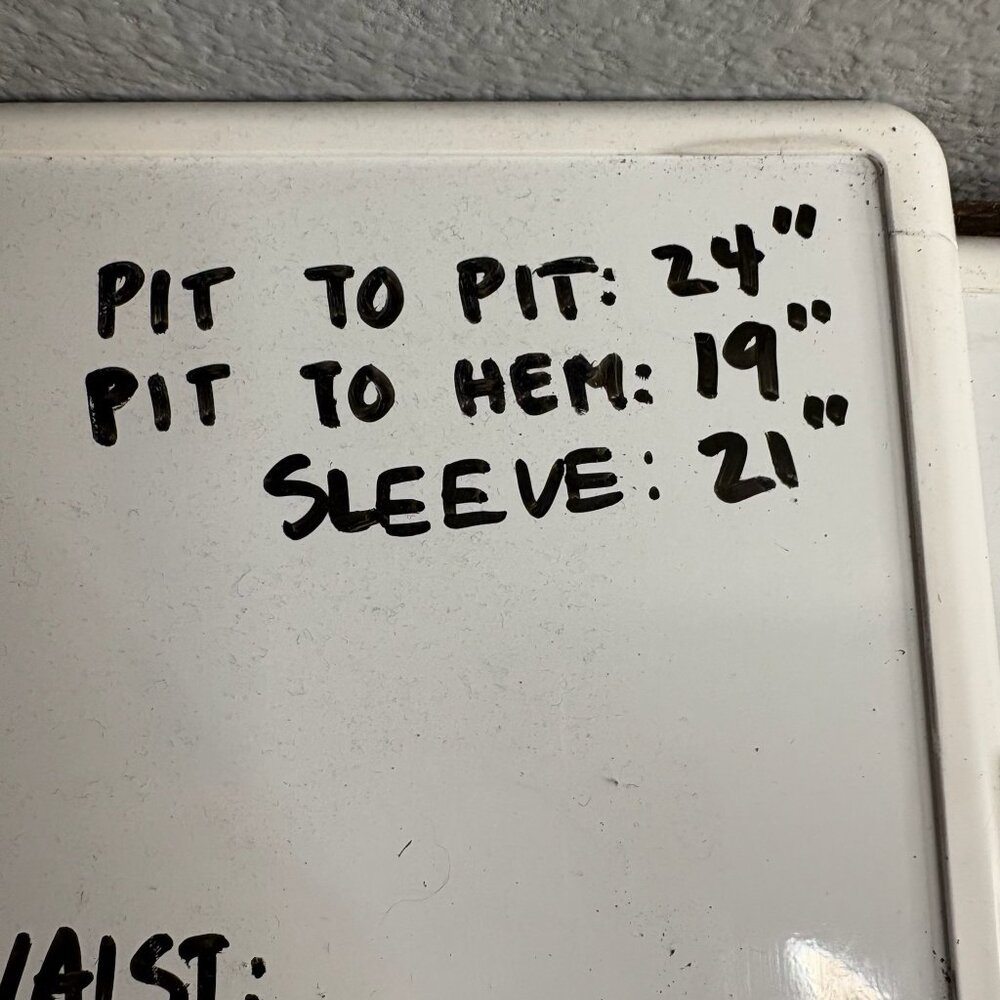 PIT TO PIT: 24"
PIT TO HEM: 19"
SLEEVE: 21"
WAIST: